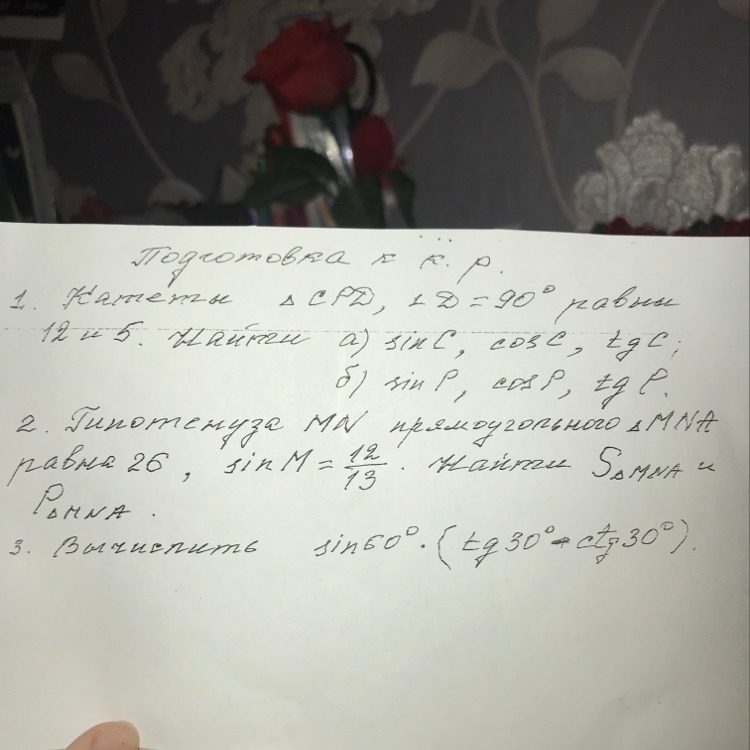 Подготовка к к. р.
1. Катеты △CPD, ∠D = 90° равны
12 и 5. Найти а) sinC, cosC, tgC;
б) sinP, cosP, tgP.
2. Гипотенуза MN прямоугольного △MNA
равна 26, sinM = 12/13. Найти S△MNA и
P△MNA.
3. Вычислить sin60°·(tg30° - ctg30°).